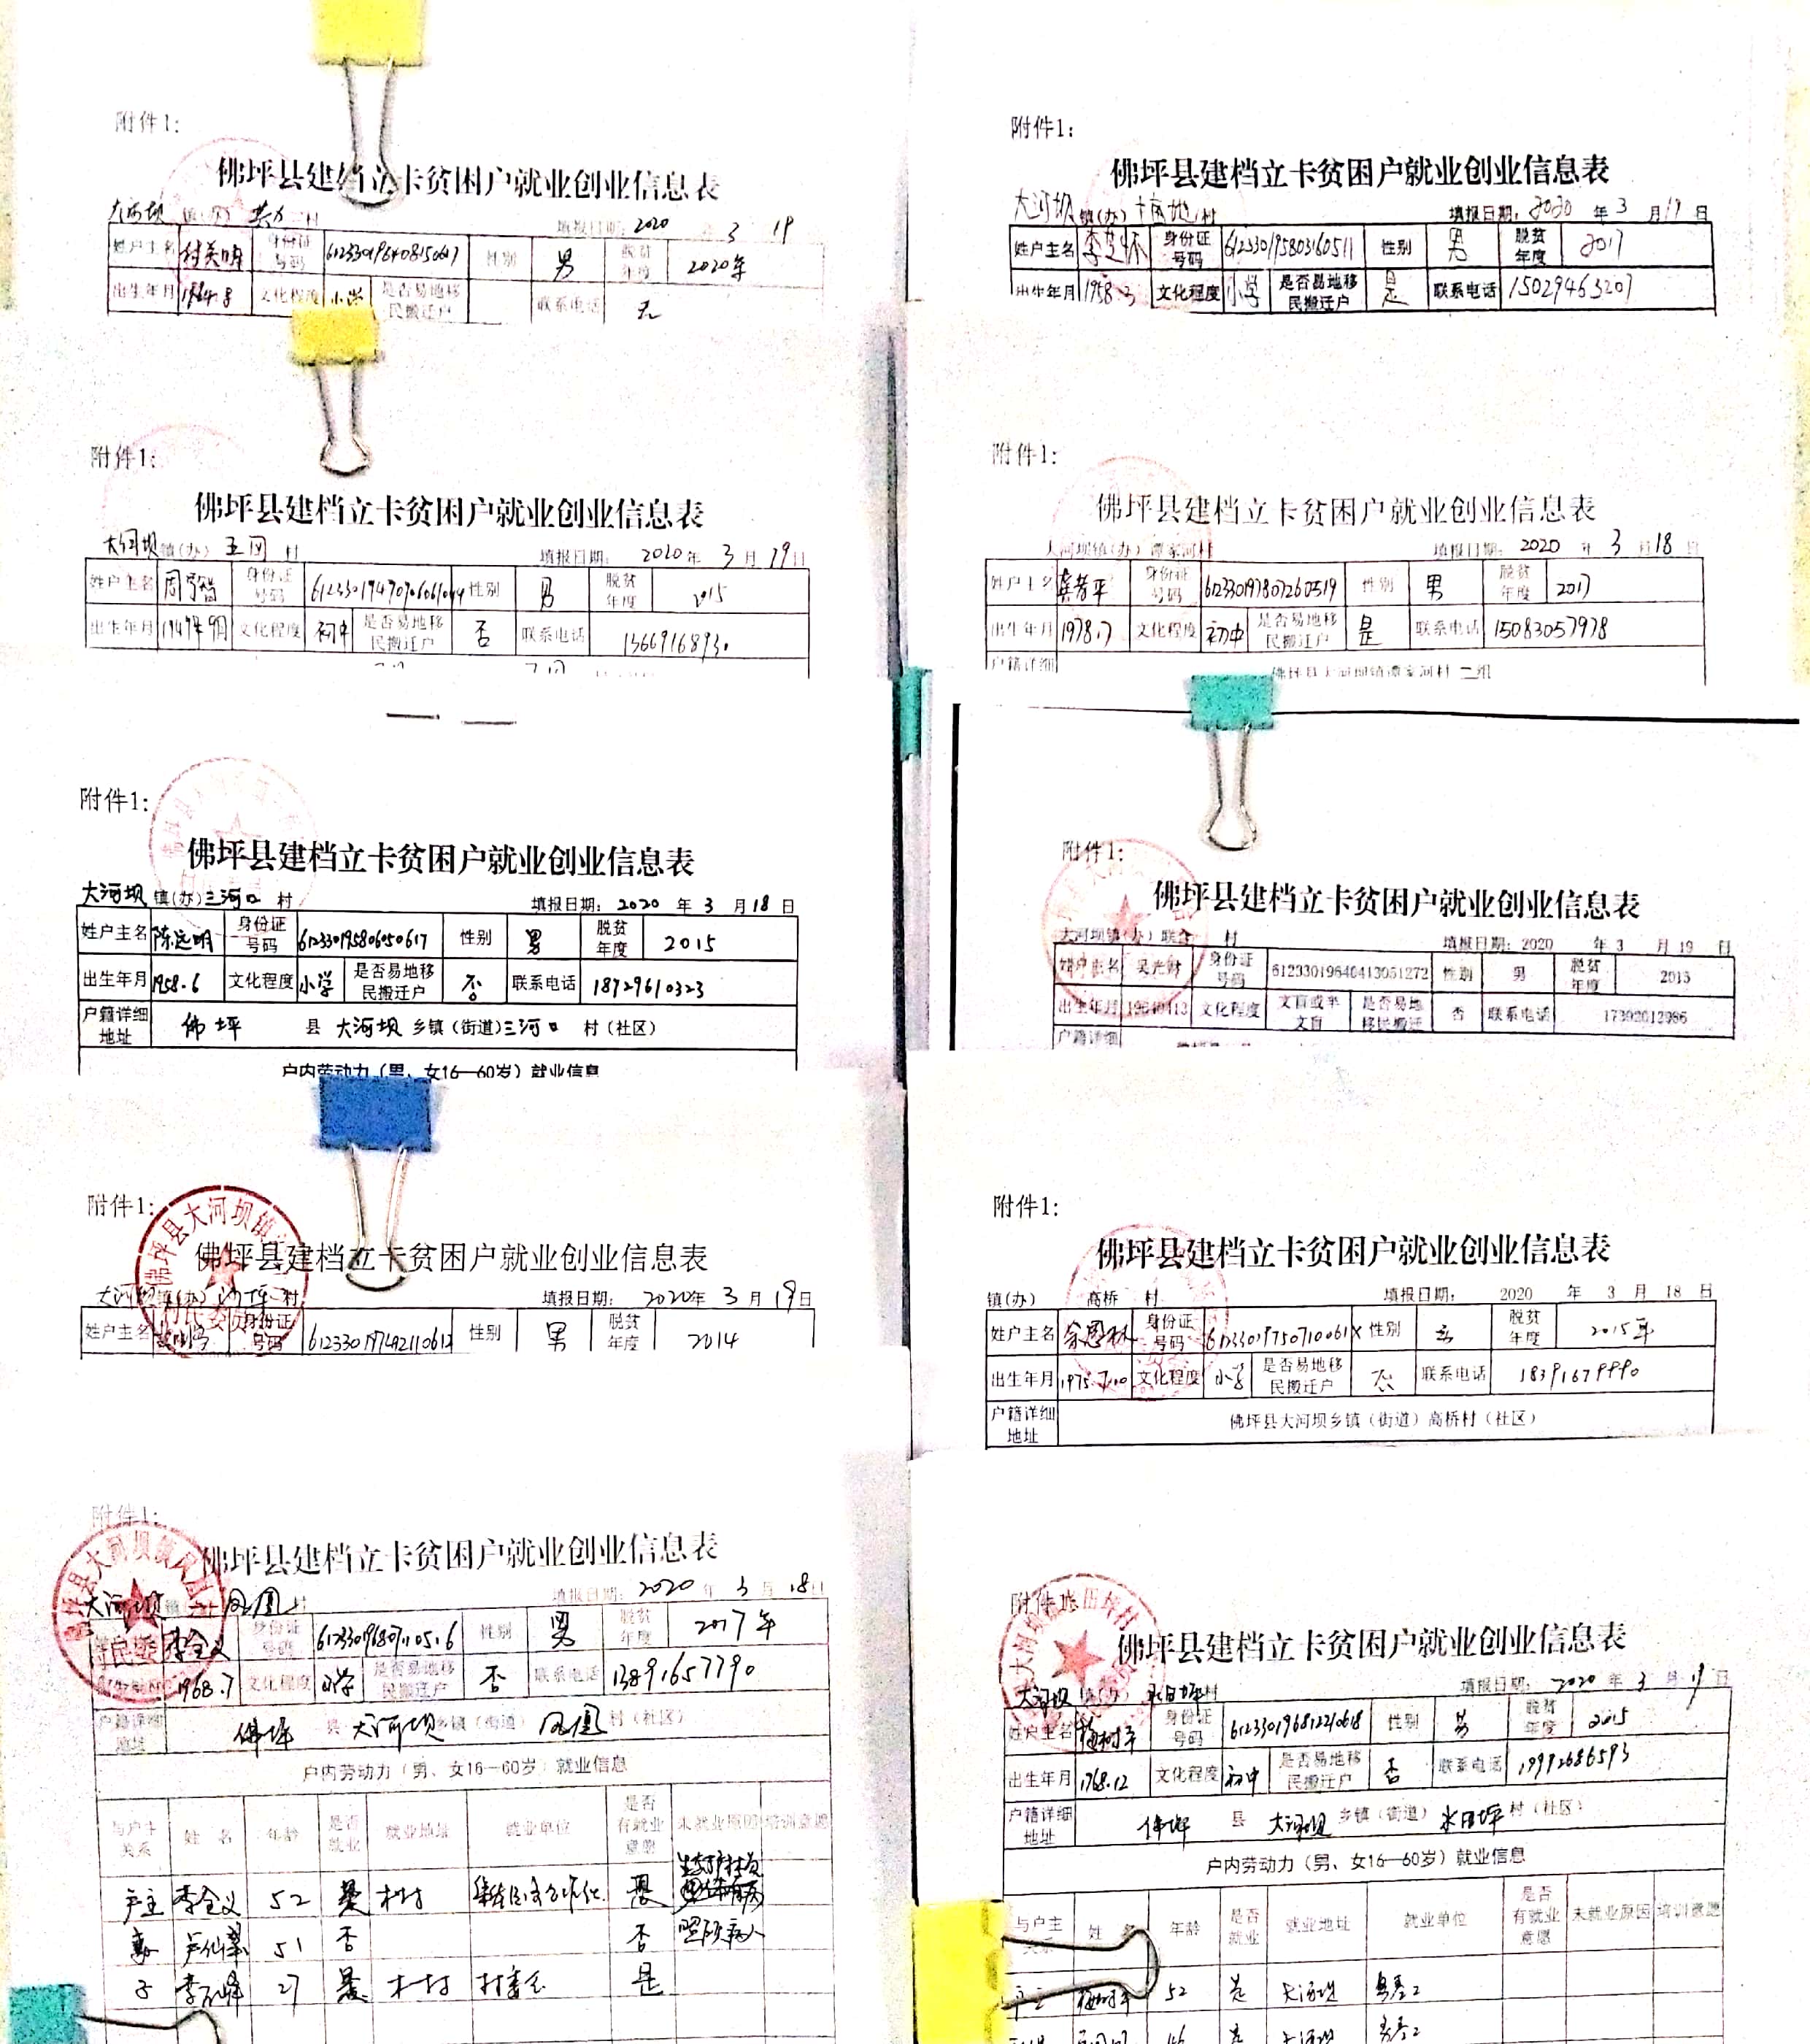 附件1:
佛坪县建档立卡贫困户就业创业信息表
大河坝 村 填报日期: 2020 3 19
姓户主名 身份证号码 性别 男 脱贫年度 2020年
出生年月 1964.8 文化程度 小学 是否易地移民搬迁户 联系电话 无
附件1:
佛坪县建档立卡贫困户就业创业信息表
大河坝 镇(办) 村 填报日期: 2020 年 3 月 19 日
姓户主名 身份证号码 612330194709060614 性别 男 脱贫年度 2015
出生年月 1947年9月 文化程度 初中 是否易地移民搬迁户 否 联系电话
附件1:
佛坪县建档立卡贫困户就业创业信息表
大河坝 镇(办) 三河口 村 填报日期: 2020 年 3 月 18 日
姓户主名 陈远明 身份证号码 612330195806050617 性别 男 脱贫年度 2015
出生年月 1958.6 文化程度 小学 是否易地移民搬迁户 否 联系电话 18729610323
户籍详细地址 佛坪 县 大河坝 乡镇(街道) 三河口 村(社区)
户内劳动力(男、女16—60岁)就业信息
附件1:
佛坪县建档立卡贫困户就业创业信息表
大河坝 镇(办) 沙坪 村 填报日期: 2020年 3 月 19 日
姓户主名 身份证号码 性别 男 脱贫年度 2014
附件1:
佛坪县建档立卡贫困户就业创业信息表
大河坝 凤凰 村 填报日期: 2020 年 3 月 18日
李全义 身份证号码 性别 男 脱贫年度 2017年
1968.7 文化程度 小学 是否易地移民搬迁户 否 联系电话 13891657790
户籍详细地址 佛坪 县 大河坝 乡镇(街道) 凤凰 村(社区)
户内劳动力(男、女16—60岁)就业信息
与户主关系 姓 名 年龄 是否就业 就业地址 就业单位 是否有就业意愿 未就业原因 培训意愿
户主 李全义 52 是 本村 是
妻 51 否 否 照顾病人
子 27 是 本村 村委会 是
附件1:
佛坪县建档立卡贫困户就业创业信息表
大河坝 镇(办) 村 填报日期: 2020 年 3 月 19 日
姓户主名 身份证号码 612330195803160511 性别 男 脱贫年度 2017
出生年月 1958.3 文化程度 小学 是否易地移民搬迁户 是 联系电话 15029463207
附件1:
佛坪县建档立卡贫困户就业创业信息表
大河坝镇(办)谭家河村 填报日期: 2020 年 3 月 18 日
姓户主名 身份证号码 612330197807260519 性别 男 脱贫年度 2017
出生年月 1978.7 文化程度 初中 是否易地移民搬迁户 是 联系电话 15083057978
户籍详细 佛坪县大河坝镇谭家河村 二组
附件1:
佛坪县建档立卡贫困户就业创业信息表
大河坝镇(办) 联合 村 填报日期: 2020 年 3 月 19 日
姓户主名 吴光财 身份证号码 61233019640413051272 性别 男 脱贫年度 2015
出生年月 19640413 文化程度 文盲或半文盲 是否易地移民搬迁 否 联系电话 17392612986
户籍详细
附件1:
佛坪县建档立卡贫困户就业创业信息表
镇(办) 高桥 村 填报日期: 2020 年 3 月 18 日
姓户主名 身份证号码 61233019750710061X 性别 脱贫年度 2015年
出生年月 1975.7.10 文化程度 小学 是否易地移民搬迁户 否 联系电话
户籍详细地址 佛坪县大河坝乡镇(街道)高桥村(社区)
附件
佛坪县建档立卡贫困户就业创业信息表
大河坝 镇(办) 水田坪村 填报日期: 2020 年 3 月 19 日
姓户主名 身份证号码 612330196812210618 性别 男 脱贫年度 2015
出生年月 1968.12 文化程度 初中 是否易地移民搬迁户 否 联系电话 19992686593
户籍详细地址 佛坪 县 大河坝 乡镇(街道) 水田坪 村(社区)
户内劳动力(男、女16—60岁)就业信息
与户主关系 姓 名 年龄 是否就业 就业地址 就业单位 是否有就业意愿 未就业原因 培训意愿
户主 52 是 大河坝 务工
46 是 大河坝 务工